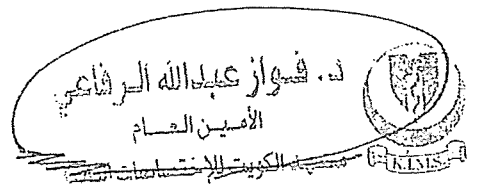 د. فواز عبدالله الرفاعي
الأمين العام
معهد الكويت للإختصاصات الطبية
K.I.M.S.